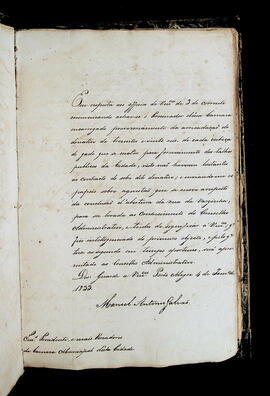 Em resposta ao officio de Vmces de 3 do corrente
communicando achar-se o Procurador dessa Camara
encarregado provisoriamente da arrecadação do
donativo de trezentos e vinte réis de cada cabeça
de gado que se matar para fornecimento dos talhos
publicos da Cidade, visto não haver
o contracto do dito donativo, e
papeis sobre
da abertura da rua da
para ser levado ao conhecimento do Conselho
Administrativo, Tenho de significar a Vmces q
fico intelligenciado do primeiro objecto, e pelo q
ao segundo em tempo opportuno, será apre-
sentado ao Conselho Administrativo.
Deos Guarde a Vmces Porto Alegre 4 de
1833
Manoel Antonio Galvão
Senrs Presidente, e mais Vereadores
da Camara Municipal desta Cidade